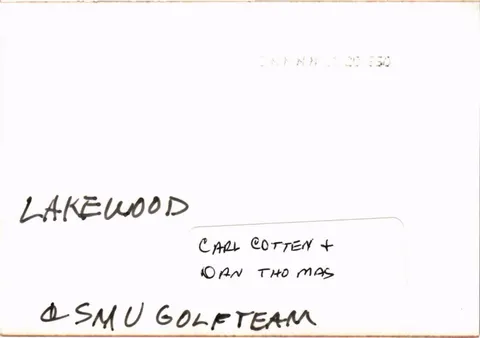 LAKEWOOD
CARL COTTEN +
DAN THOMAS
& SMU GOLF TEAM